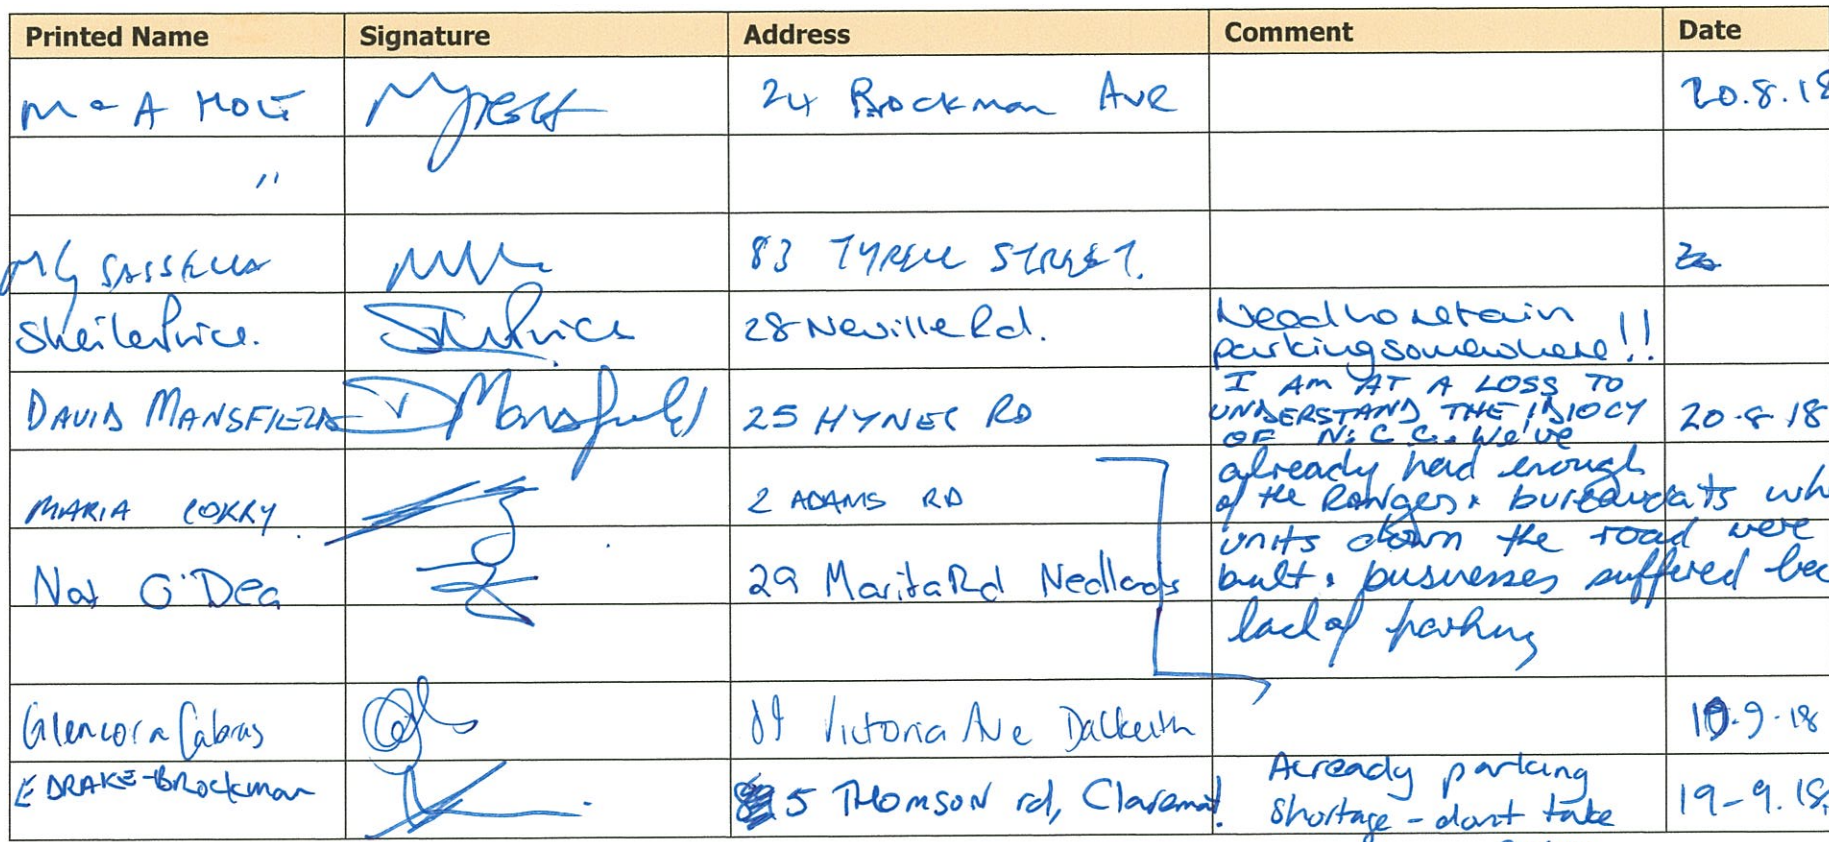 Printed Name Signature Address Comment Date
M & A HOLT 24 Brockman Ave 20.8.18
"
MG SASSELLA 83 TYRELL STREET.
Sheila Price. 28 Neville Rd. Need to retain
parking somewhere!!
DAVID MANSFIELD D Mansfield 25 HYNES RD I AM AT A LOSS TO
UNDERSTAND THE IDIOCY 20.8.18
OF N.C.C. We've
MARIA CORRY 2 ADAMS RD already had enough
of the Rangers & bureaucrats wh
units down the road were
Nat O'Dea 29 Marita Rd Nedlands built. businesses suffered bec
lack of parking
Glencora Cabras Victoria Ave Dalkeith 10.9.18
E DRAKE-Brockman 5 THOMSON rd, Claremont. Already parking
shortage - dont take 19-9.18